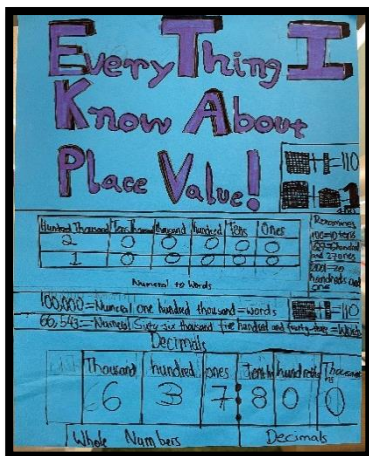 EveryThing I
Know About
Place Value!
=110
Hundred Thousand Tens Thousand thousand hundred Tens Ones
2 0 0 0 0 0
1 0 0 0 0 0
Renaming
100=10 tens
and 27 ones
hundreds and
one
Numeral to Words
100,000=Numeral one hundred thousand=words
=110
66,543=Numeral Sixty six thousand five hundred and fourty three=Words
Decimals
Thousand hundred ones Tenths hundredths Thousanths
6 3 7 8 0 0
Whole Numbers Decimals